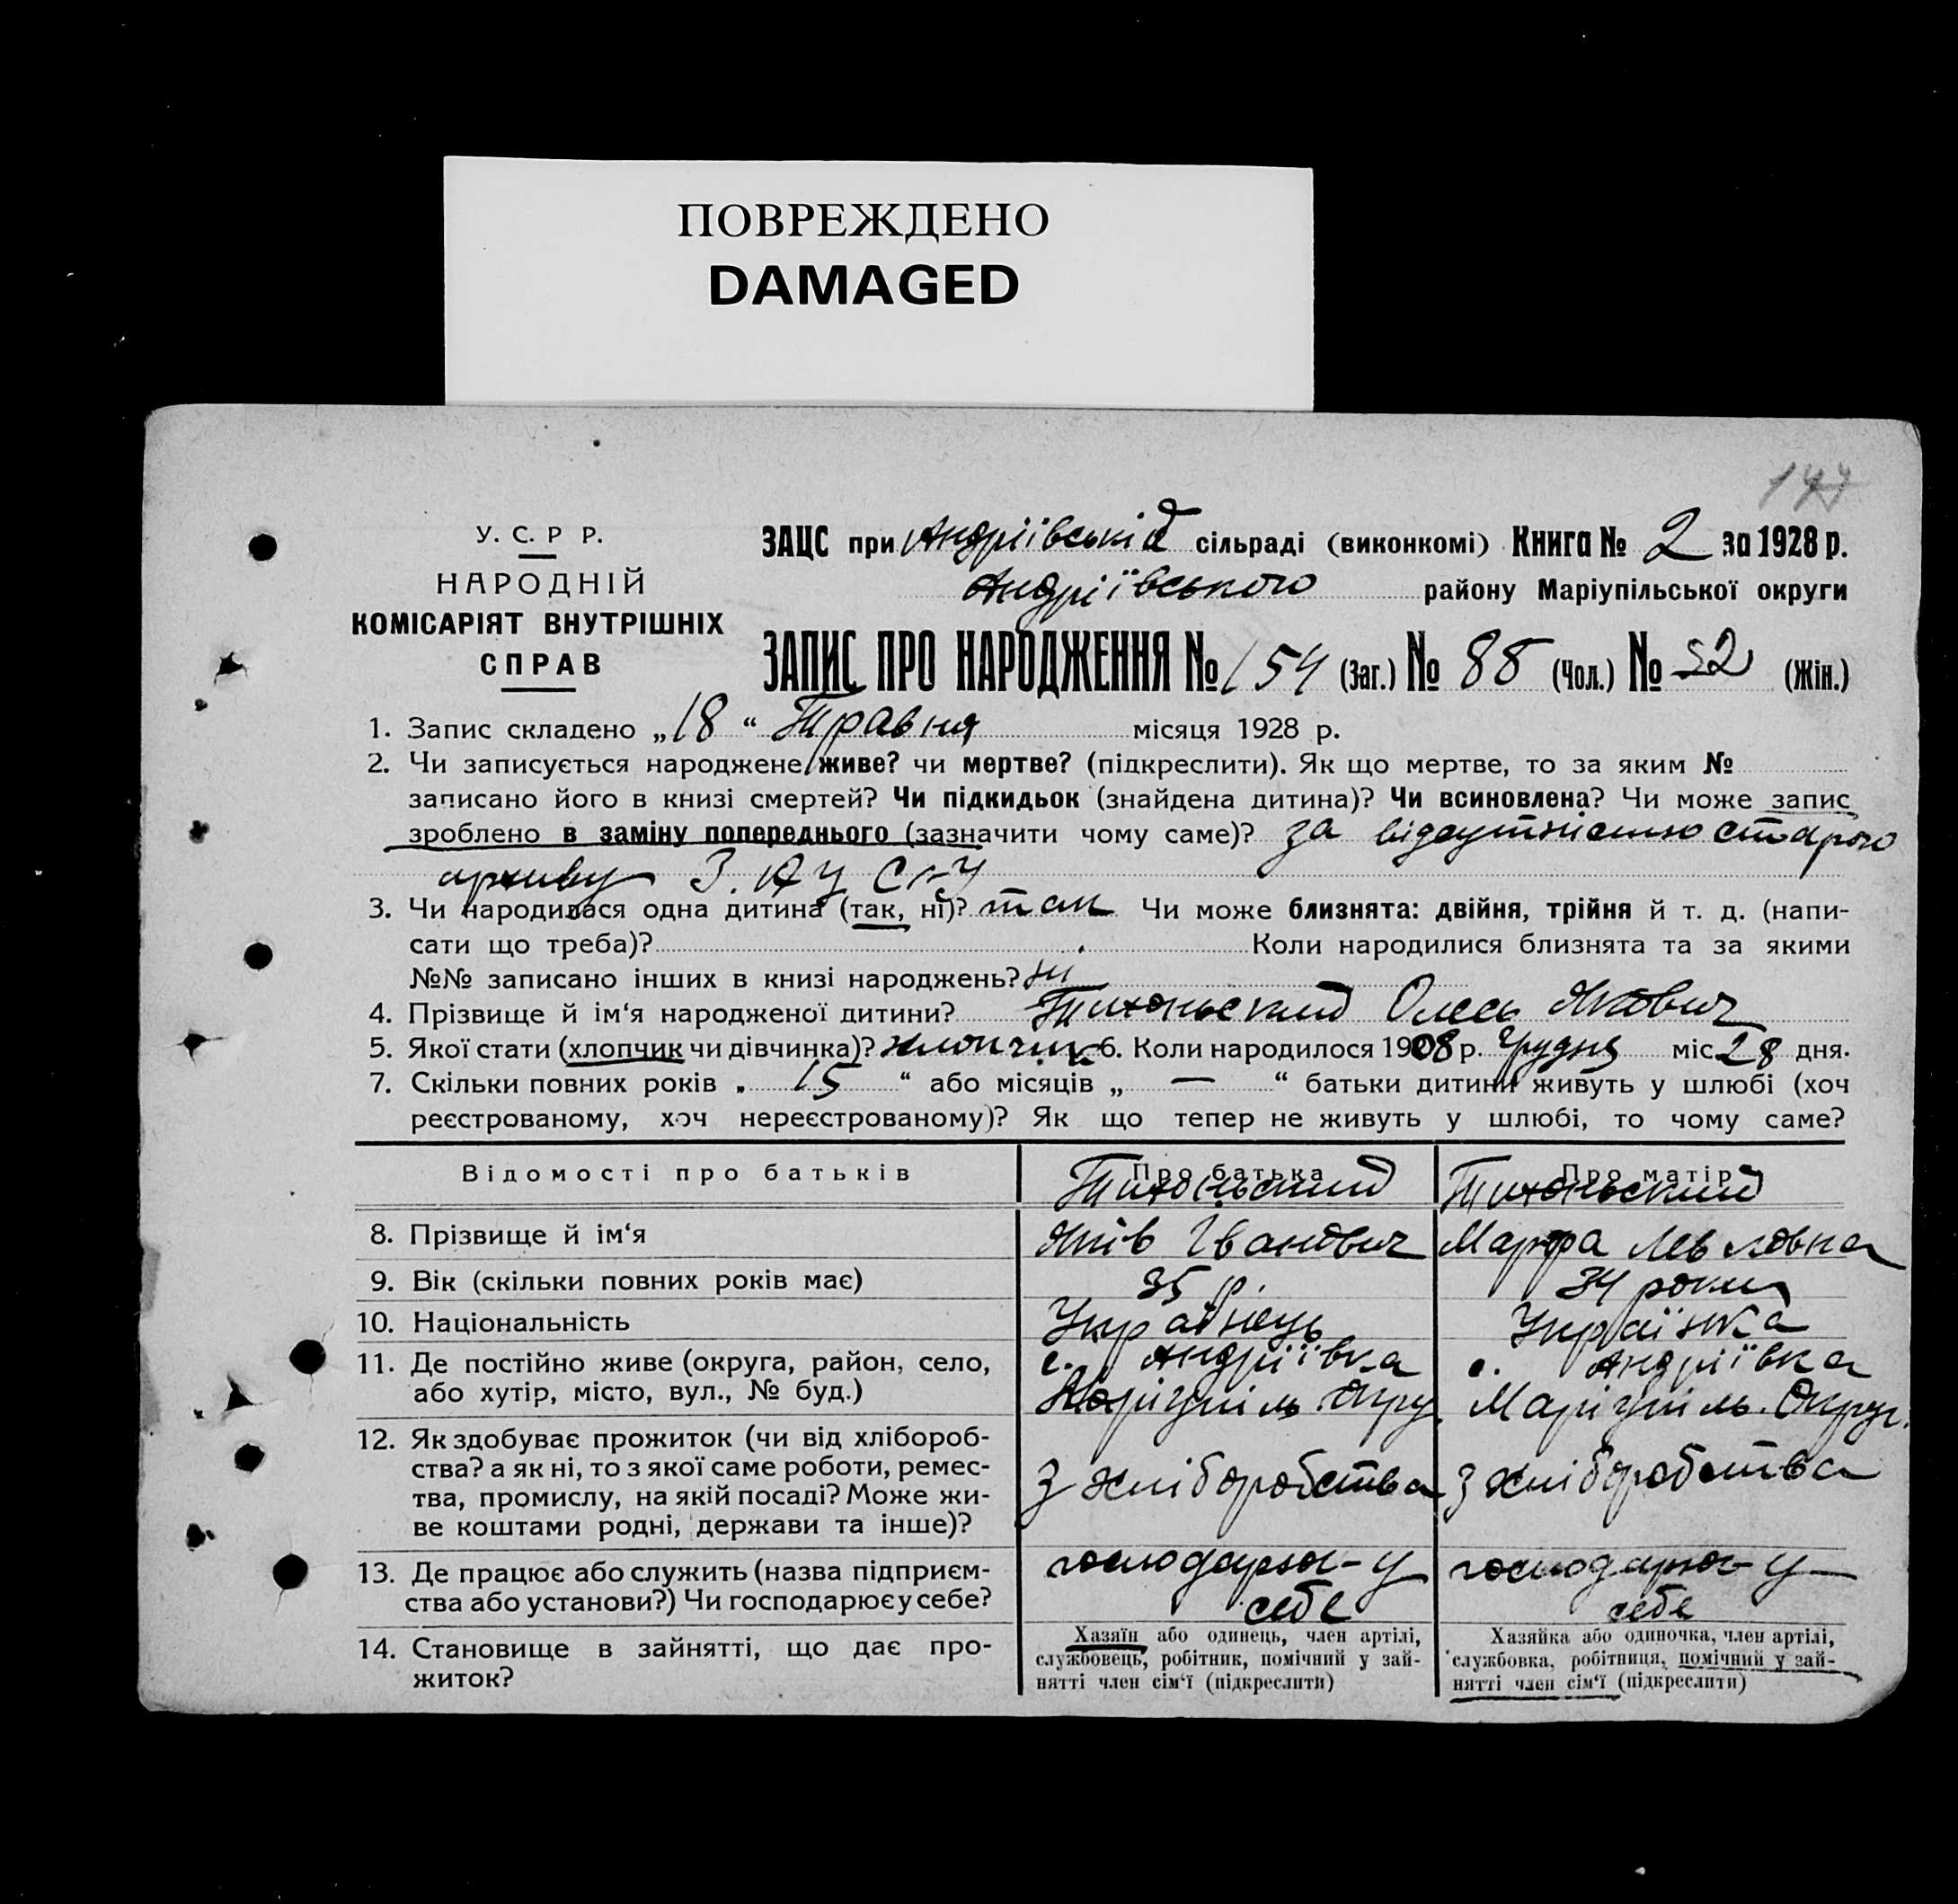 ПОВРЕЖДЕНО
DAMAGED
147
У. С. Р Р.
НАРОДНІЙ
КОМІСАРІЯТ ВНУТРІШНІХ
СПРАВ
ЗАЦС при Андріївській сільраді (виконкомі) Книга № 2 за 1928 р.
Андріївського району Маріупільської округи
ЗАПИС ПРО НАРОДЖЕННЯ № 154 (Заг.) № 88 (Чол.) № 52 (Жін.)
1. Запис складено „18“ Травня місяця 1928 р.
2. Чи записується народжене живе? чи мертве? (підкреслити). Як що мертве, то за яким №
записано його в книзі смертей? Чи підкидьок (знайдена дитина)? Чи всиновлена? Чи може запис
зроблено в заміну попереднього (зазначити чому саме)? за відсутністью старого
архиву
3. Чи народилася одна дитина (так, ні)? так Чи може близнята: двійня, трійня й т. д. (напи-
сати що треба)? Коли народилися близнята та за якими
№№ записано інших в книзі народжень? ні
4. Прізвище й ім‘я народженої дитини? Тихоньский Олесь Якович
5. Якої стати (хлопчик чи дівчинка)? хлопчик 6. Коли народилося 1908 р. Грудня міс. 28 дня.
7. Скільки повних років „ 15 “ або місяців „ — “ батьки дитини живуть у шлюбі (хоч
реєстрованому, хоч нереєстрованому)? Як що тепер не живуть у шлюбі, то чому саме?
Відомості про батьків Про батька Про матір
Тихоньский Тихоньский
8. Прізвище й ім‘я Яків Іванович Марфа
9. Вік (скільки повних років має) 35 р. 34 роки
10. Національність Українець Українка
11. Де постійно живе (округа, район, село, с. Андріївка с. Андріївка
або хутір, місто, вул., № буд.) Маріупіль. Окру. Маріупіль. Округ.
12. Як здобуває прожиток (чи від хлібороб-
ства? а як ні, то з якої саме роботи, ремес- з хліборобства з хліборобства
тва, промислу, на якій посаді? Може жи-
ве коштами родні, держави та інше)?
13. Де працює або служить (назва підприєм- господарює у господарює у
ства або установи?) Чи господарює у себе? себе себе
14. Становище в зайнятті, що дає про-
житок?
Хазяїн або одинець, член артілі,
службовець, робітник, помічний у зай-
нятті член сім‘ї (підкреслити)
Хазяйка або одиночка, член артілі,
службовка, робітниця, помічний у зай-
нятті член сім‘ї (підкреслити)